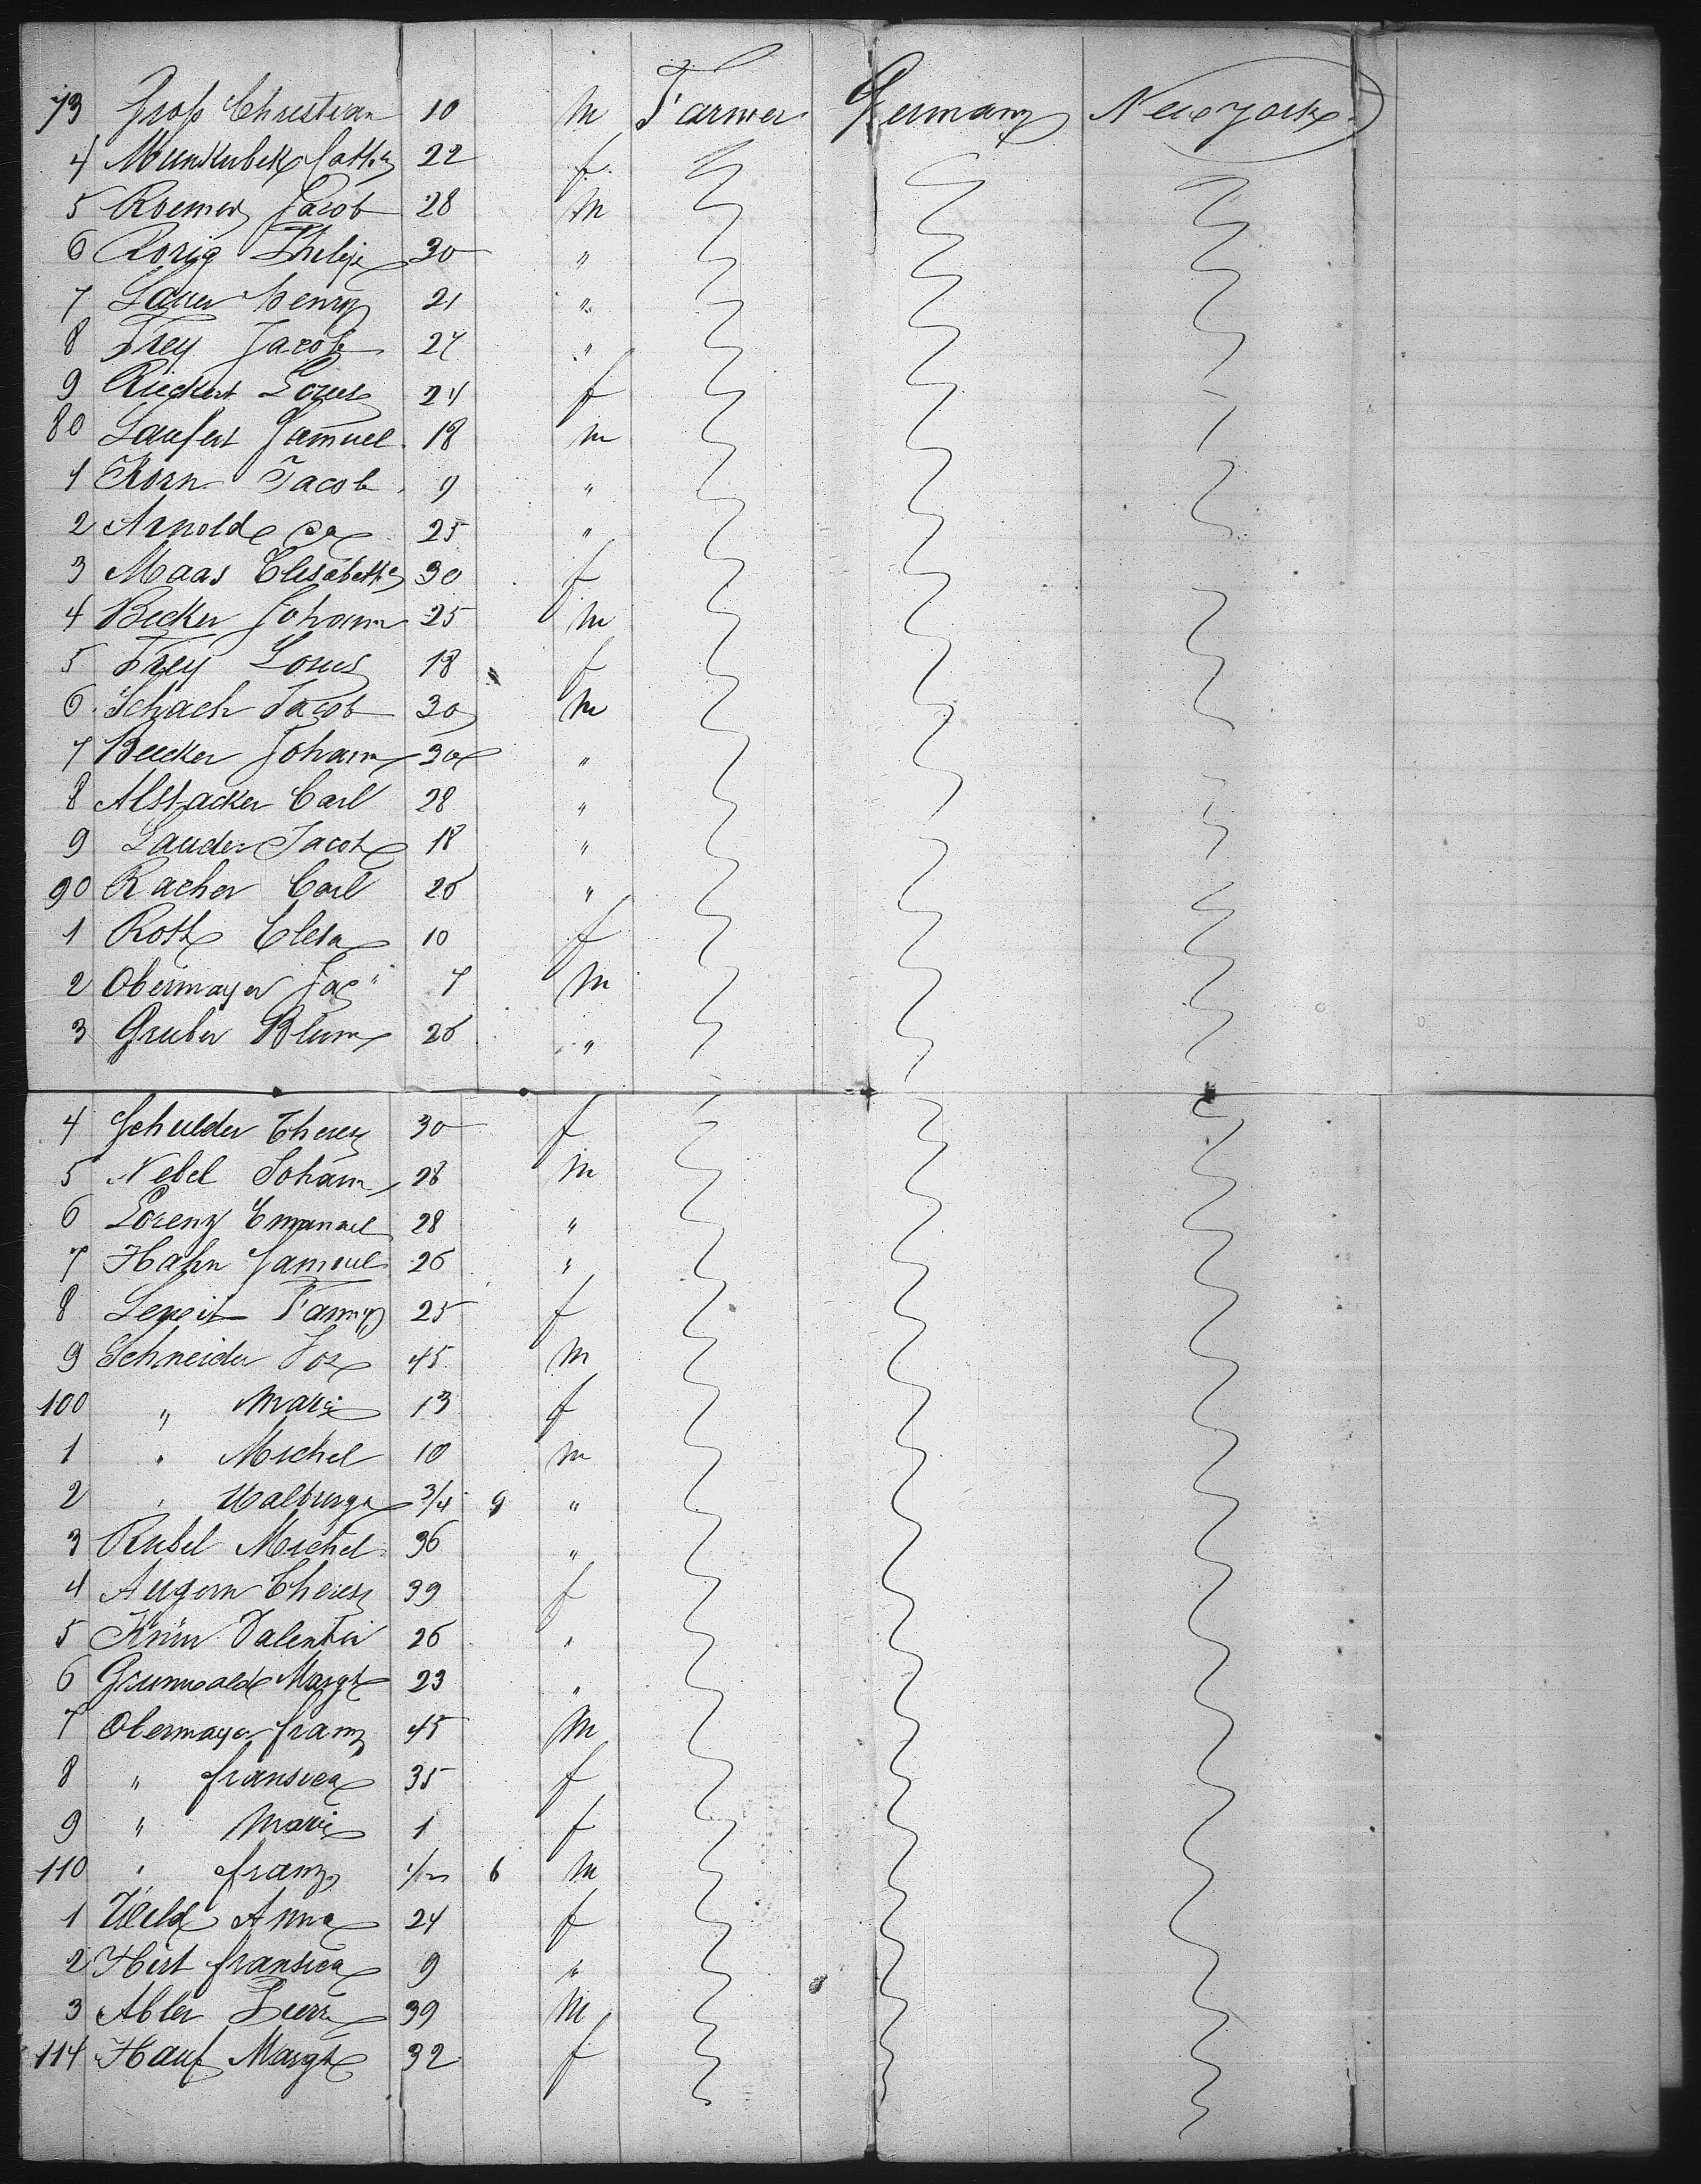 73 Groß Christian 10 m Farmer Germany New York
4 Munkubek Cath. 22 f
5 Roemer Jacob 28 m
6 Rorig Philip 30 "
7 Lauer Henry 21 "
8 Frey Jacob 24 "
9 Rieckert Louis 24 f
80 Laufert Samuel 18 m
1 Korn Jacob 9 "
2 Arnold 25 "
3 Maas Elisabeth 30 f
4 Becker Johann 25 m
5 Frey Louis 18 f
6 Schach Jacob 30 m
7 Becker Johann 30 "
8 Alspacker Carl 28 "
9 Lauder Jacob 18 "
90 Racher Carl 26 "
1 Roth Elisa 10 f
2 Obermayer Jac " 7 m
3 Gruber Blum 26 "
4 Schulder Theres 30 f
5 Nebel Johann 28 m
6 Lorenz Emanuel 28 "
7 Hahn Samuel 26 "
8 Fanny 25 f
9 Schneider Jos 45 m
100 " Marie 13 f
1 " Michel 10 m
2 " Walburga 3/4 9 "
3 Rubel Michel 36 "
4 Augorn Theres 39 f
5 Valentin 26 "
6 Grunwald Margt 23 "
7 Obermayer franz 45 m
8 " fransica 35 f
9 " Marie 1 f
110 " franz 1/2 6 m
1 Anna 24 f
2 Hirt fransica 9 "
3 Abler Pierre 39 m
114 Hauf Margt 32 f